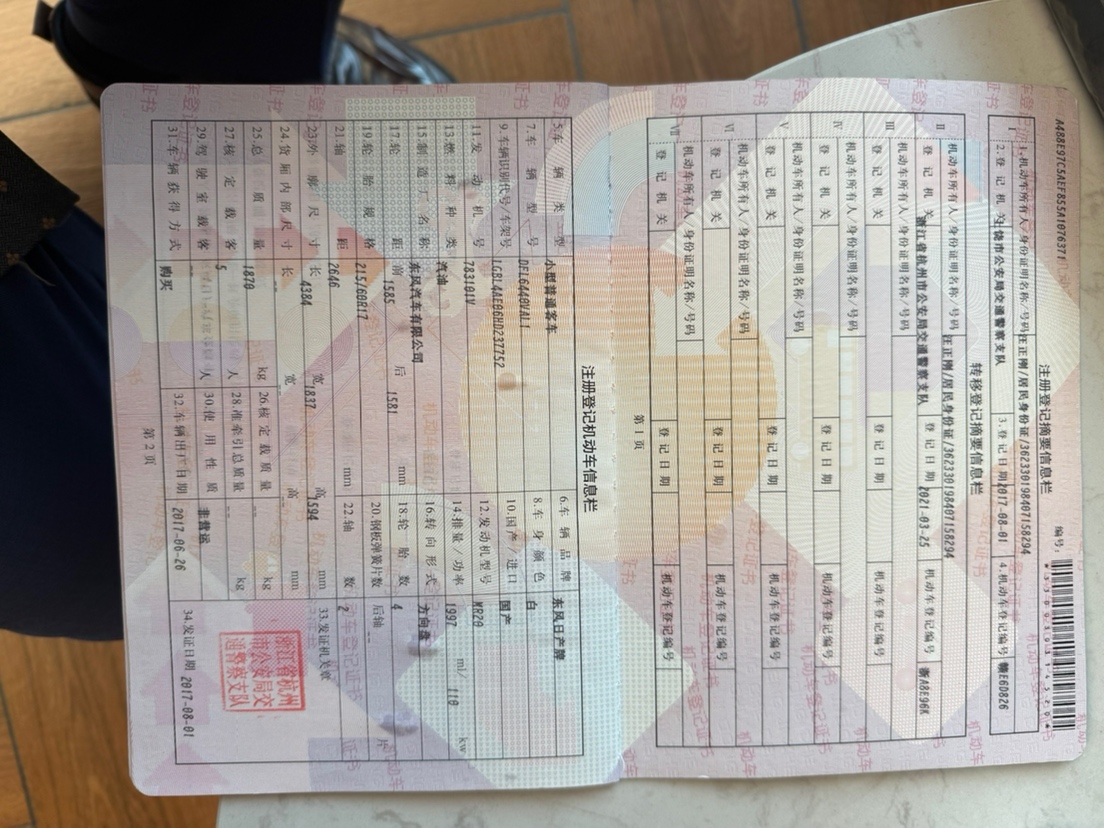 A4BBE97C5AEF855A1076371
注册登记摘要信息栏
编号:
I
1.机动车所有人/身份证明名称/号码 汪正刚/居民身份证/362330198407158294
2.登记机关 上饶市公安局交通警察支队 3.登记日期 2017-08-01 4.机动车登记编号 赣E6D826
转移登记摘要信息栏
II
机动车所有人/身份证明名称/号码 汪正刚/居民身份证/362330198407158294
登记机关 浙江省杭州市公安局交通警察支队 登记日期 2021-03-25 机动车登记编号 浙A8E96K
III
机动车所有人/身份证明名称/号码
登记机关 登记日期 机动车登记编号
IV
机动车所有人/身份证明名称/号码
登记机关 登记日期 机动车登记编号
V
机动车所有人/身份证明名称/号码
登记机关 登记日期 机动车登记编号
VI
机动车所有人/身份证明名称/号码
登记机关 登记日期 机动车登记编号
VII
机动车所有人/身份证明名称/号码
登记机关 登记日期 机动车登记编号
第1页
注册登记机动车信息栏
5.车辆类型 小型普通客车 6.车辆品牌 东风日产牌
7.车辆型号 DFL6440VAL1 8.车身颜色 白
9.车辆识别代号/车架号 LGBL4AE06HD237752 10.国产/进口 国产
11.发动机号 783181V 12.发动机型号 MR20
13.燃料种类 汽油 14.排量/功率 1997 ml/ 110 kw
15.制造厂名称 东风汽车有限公司 16.转向形式 方向盘
17.轮距 前 1585 后 1581 mm 18.轮胎数 4
19.轮胎规格 215/60R17 20.钢板弹簧片数 后轴 -- 片
21.轴距 2646 mm 22.轴数 2
23.外廓尺寸 长 4384 宽 1837 高 1594 mm 33.发证机关章
24.货厢内部尺寸 长 -- 宽 -- 高 -- mm
浙江省杭州
市公安局交
通警察支队
25.总质量 1870 kg 26.核定载质量 -- kg
27.核定载客 5 人 28.准牵引总质量 -- kg
29.驾驶室载客 -- 人 30.使用性质 非营运
31.车辆获得方式 购买 32.车辆出厂日期 2017-06-26 34.发证日期 2017-08-01
第2页